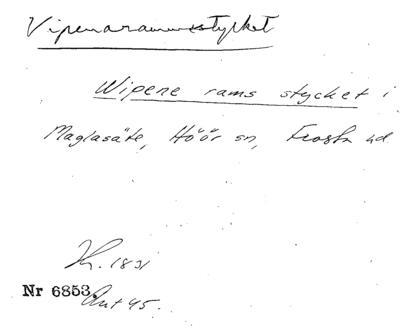 Vipenaramsstycket
Wipene rams stycket i
Maglasäte, Höör sn, Frosta hd
Nr 6853